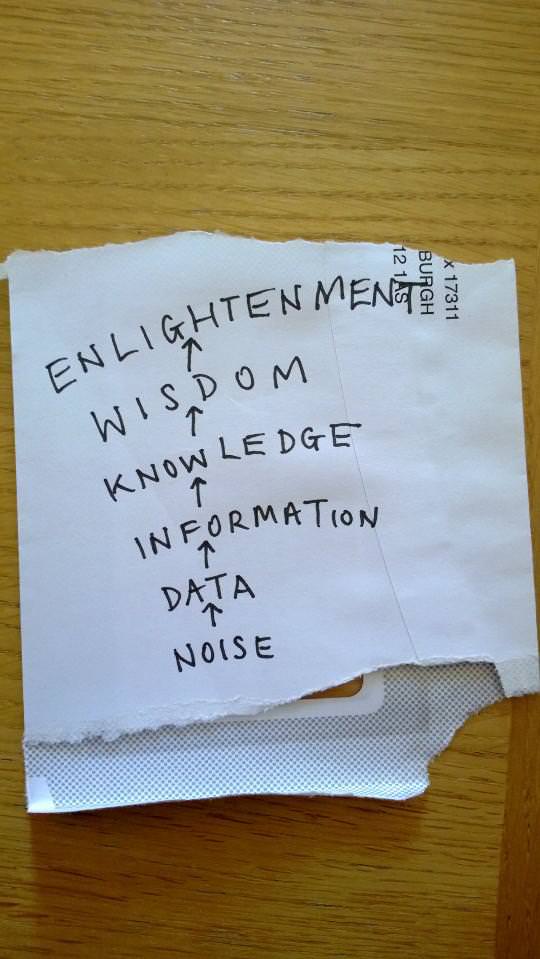 x 17311
BURGH
12 1AS
ENLIGHTENMENT
↑
WISDOM
↑
KNOWLEDGE
↑
INFORMATION
↑
DATA
↑
NOISE